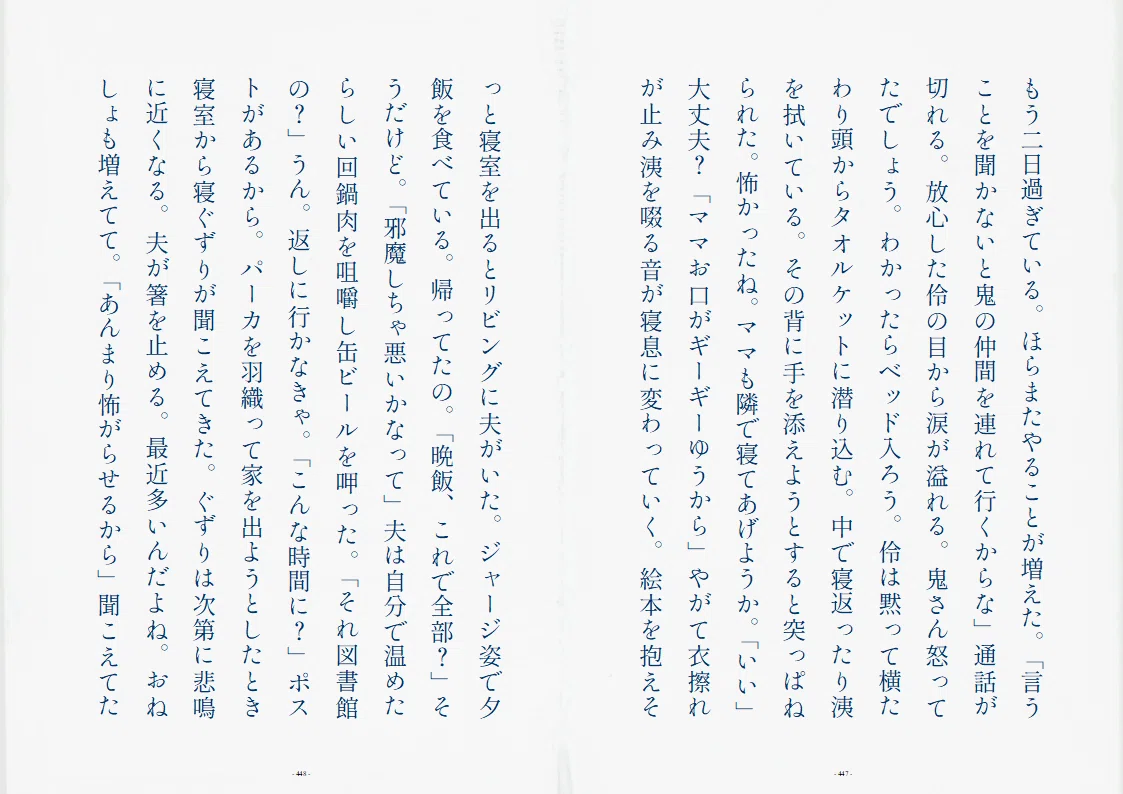 もう二日過ぎている。ほらまたやることが増えた。「言う
ことを聞かないと鬼の仲間を連れて行くからな」通話が
切れる。放心した伶の目から涙が溢れる。鬼さん怒って
たでしょう。わかったらベッド入ろう。伶は黙って横た
わり頭からタオルケットに潜り込む。中で寝返ったり洟
を拭いている。その背に手を添えようとすると突っぱね
られた。怖かったね。ママも隣で寝てあげようか。「いい」
大丈夫？「ママお口がギーギーゆうから」やがて衣擦れ
が止み洟を啜る音が寝息に変わっていく。絵本を抱えそ
- 447 -
っと寝室を出るとリビングに夫がいた。ジャージ姿で夕
飯を食べている。帰ってたの。「晩飯、これで全部？」そ
うだけど。「邪魔しちゃ悪いかなって」夫は自分で温めた
らしい回鍋肉を咀嚼し缶ビールを呷った。「それ図書館
の？」うん。返しに行かなきゃ。「こんな時間に？」ポス
トがあるから。パーカを羽織って家を出ようとしたとき
寝室から寝ぐずりが聞こえてきた。ぐずりは次第に悲鳴
に近くなる。夫が箸を止める。最近多いんだよね。おね
しょも増えてて。「あんまり怖がらせるから」聞こえてた
- 448 -